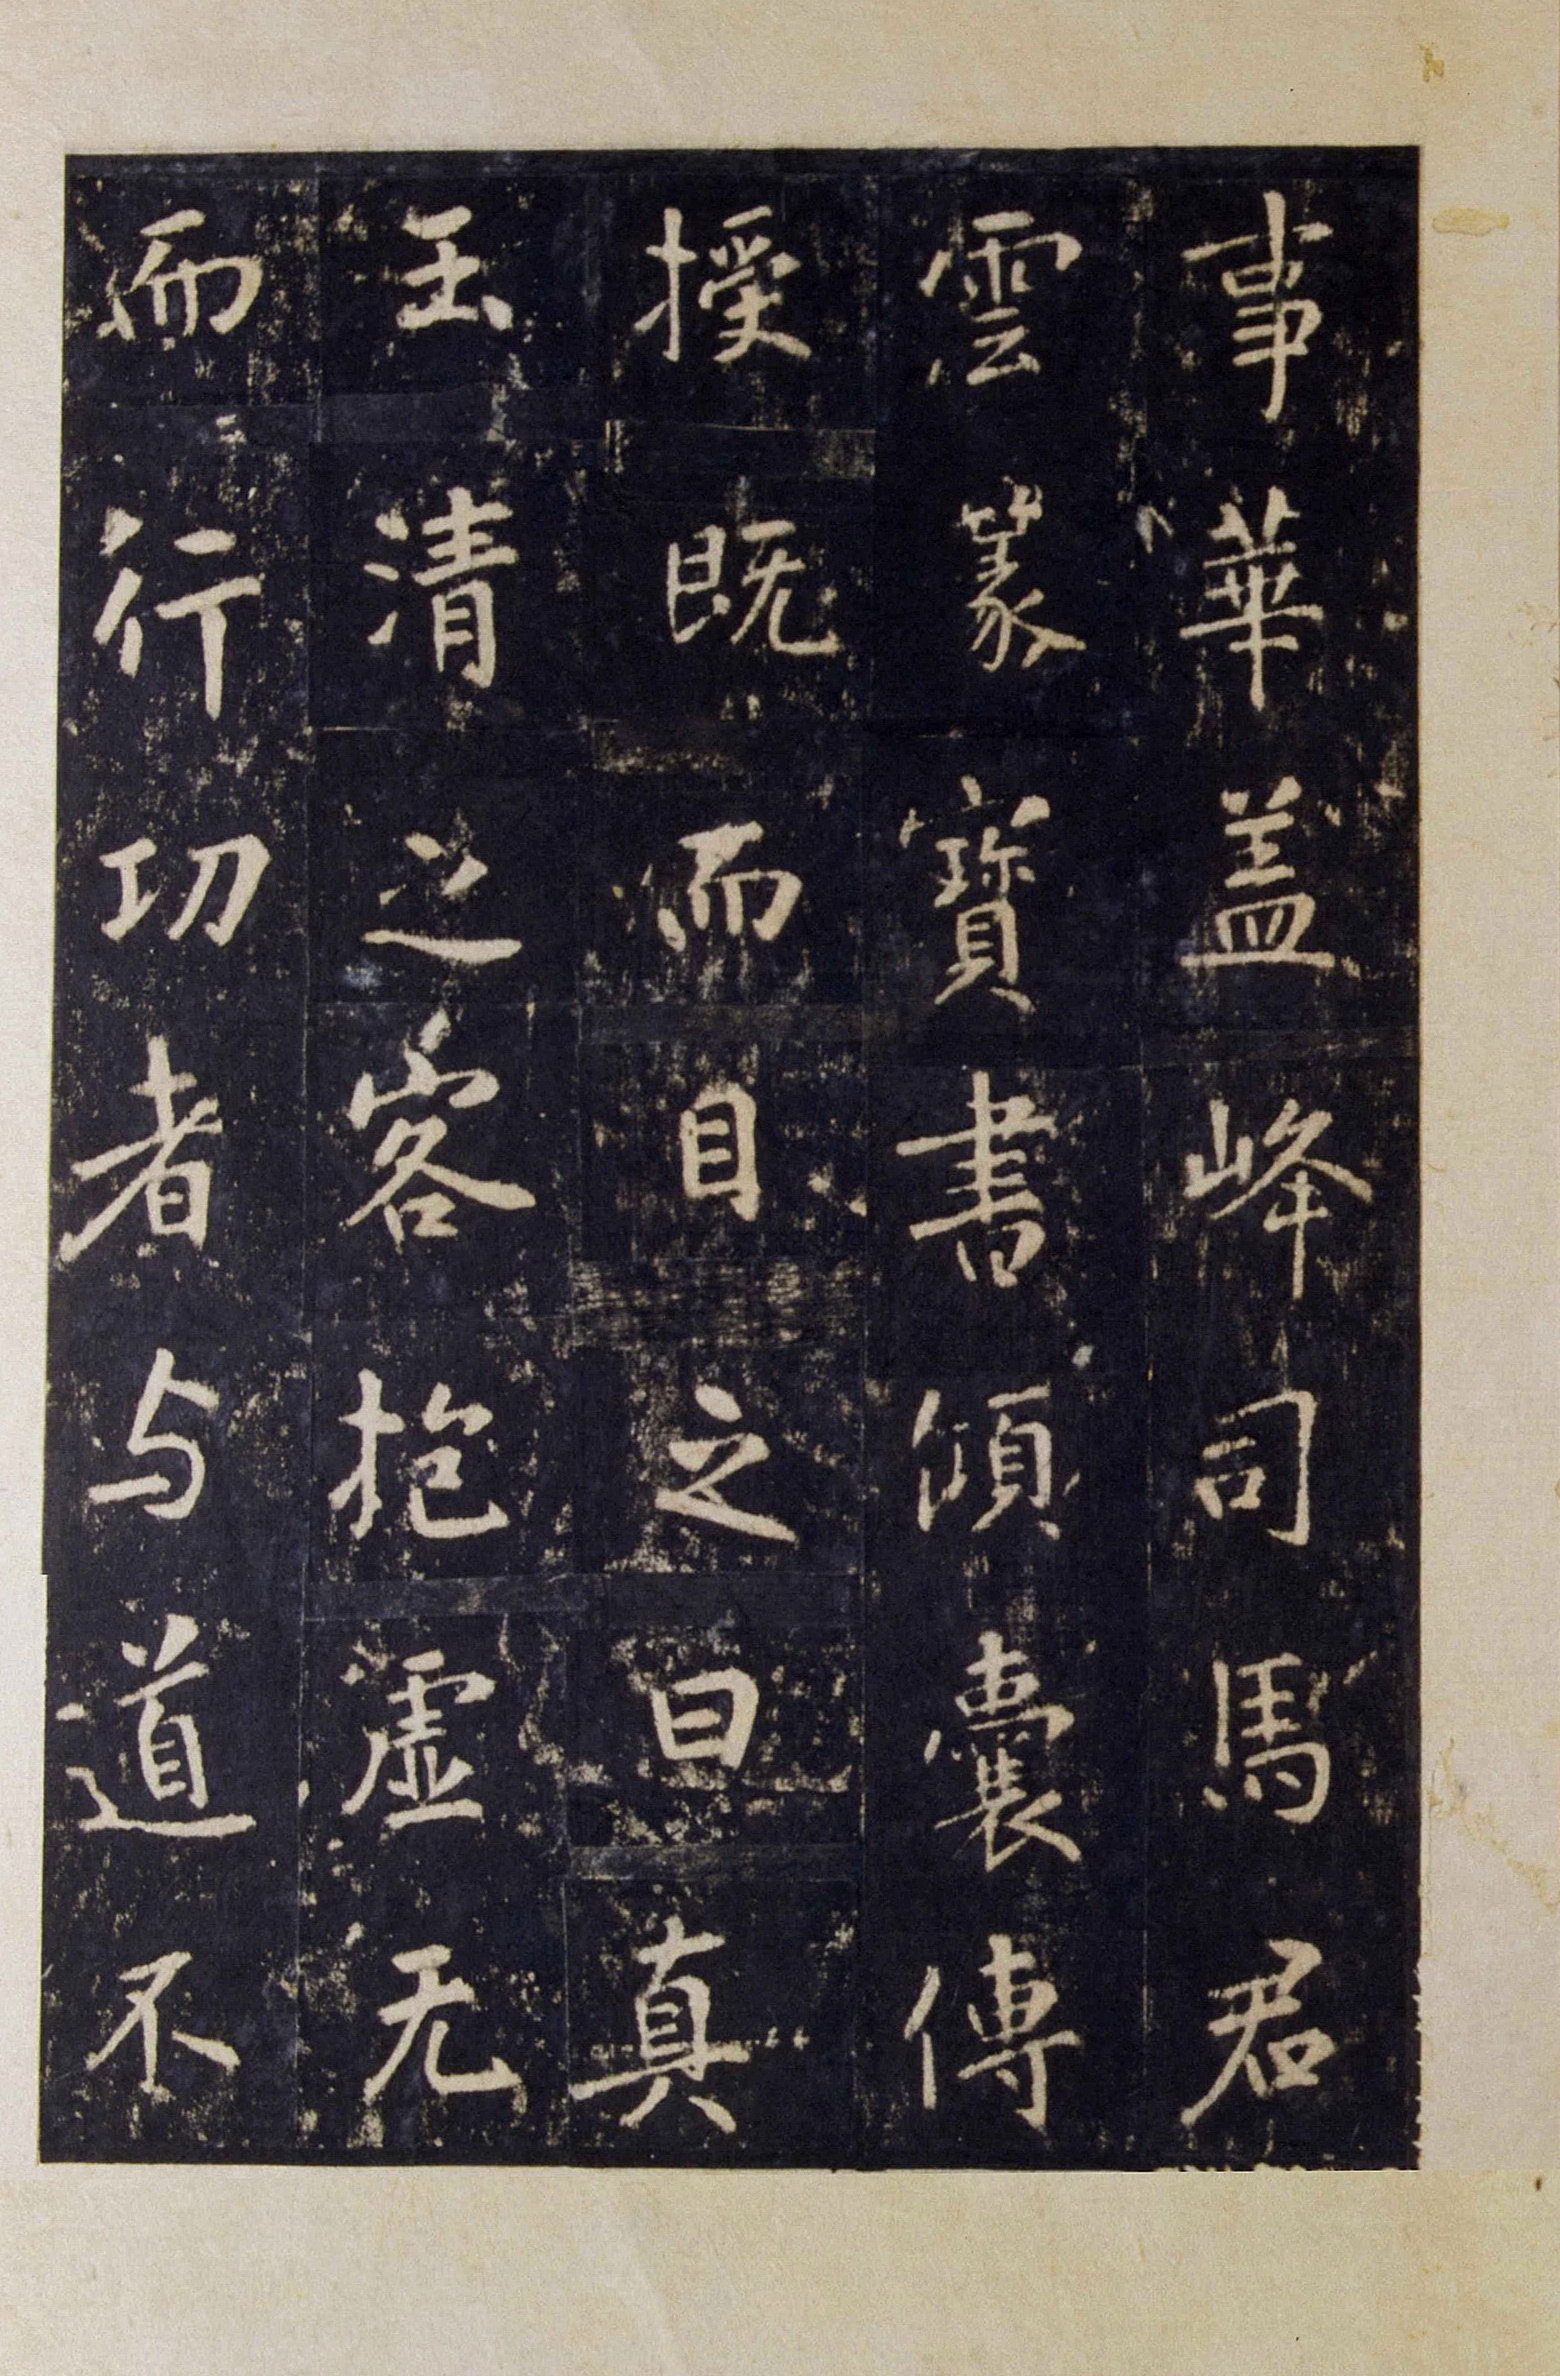 事華盖峰司馬君
雲篆寳書傾囊傳
授既而目之曰真
玉清之客抱虛无
而行功者与道不